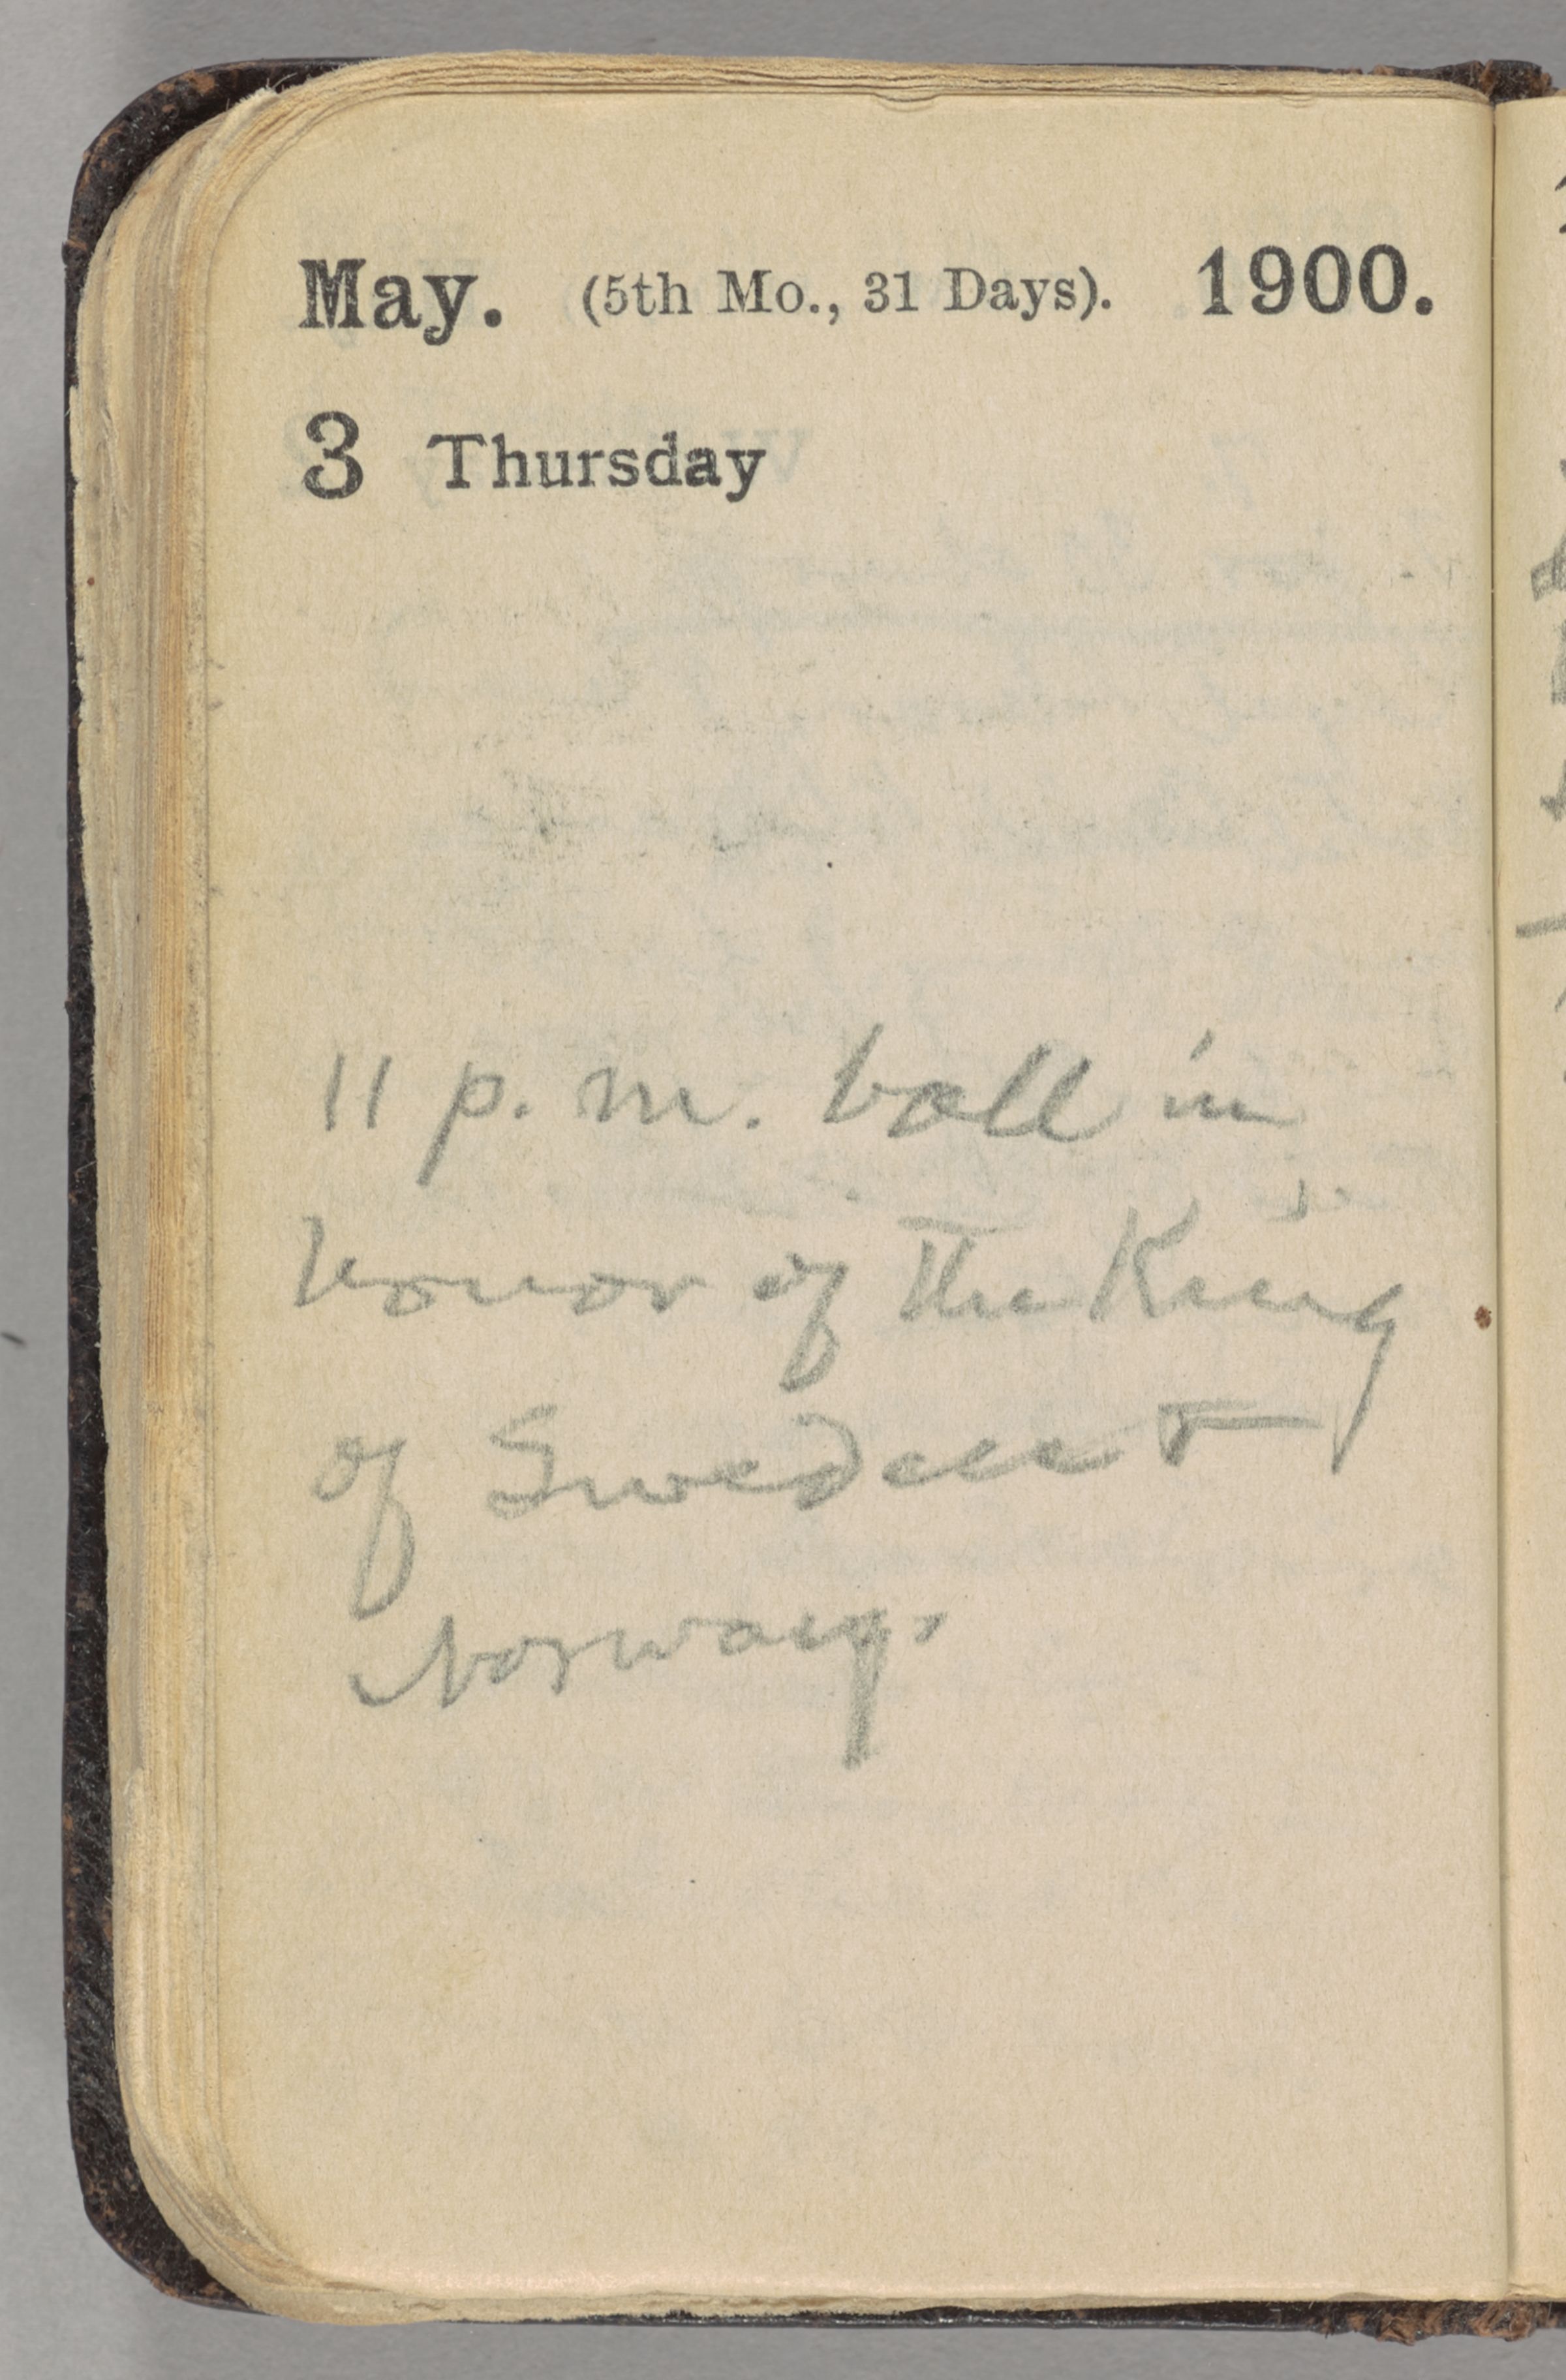 May. (5th Mo., 31 Days). 1900.
3 Thursday
11 p. m. ball in
honor of the King
of Sweden &
Norway.